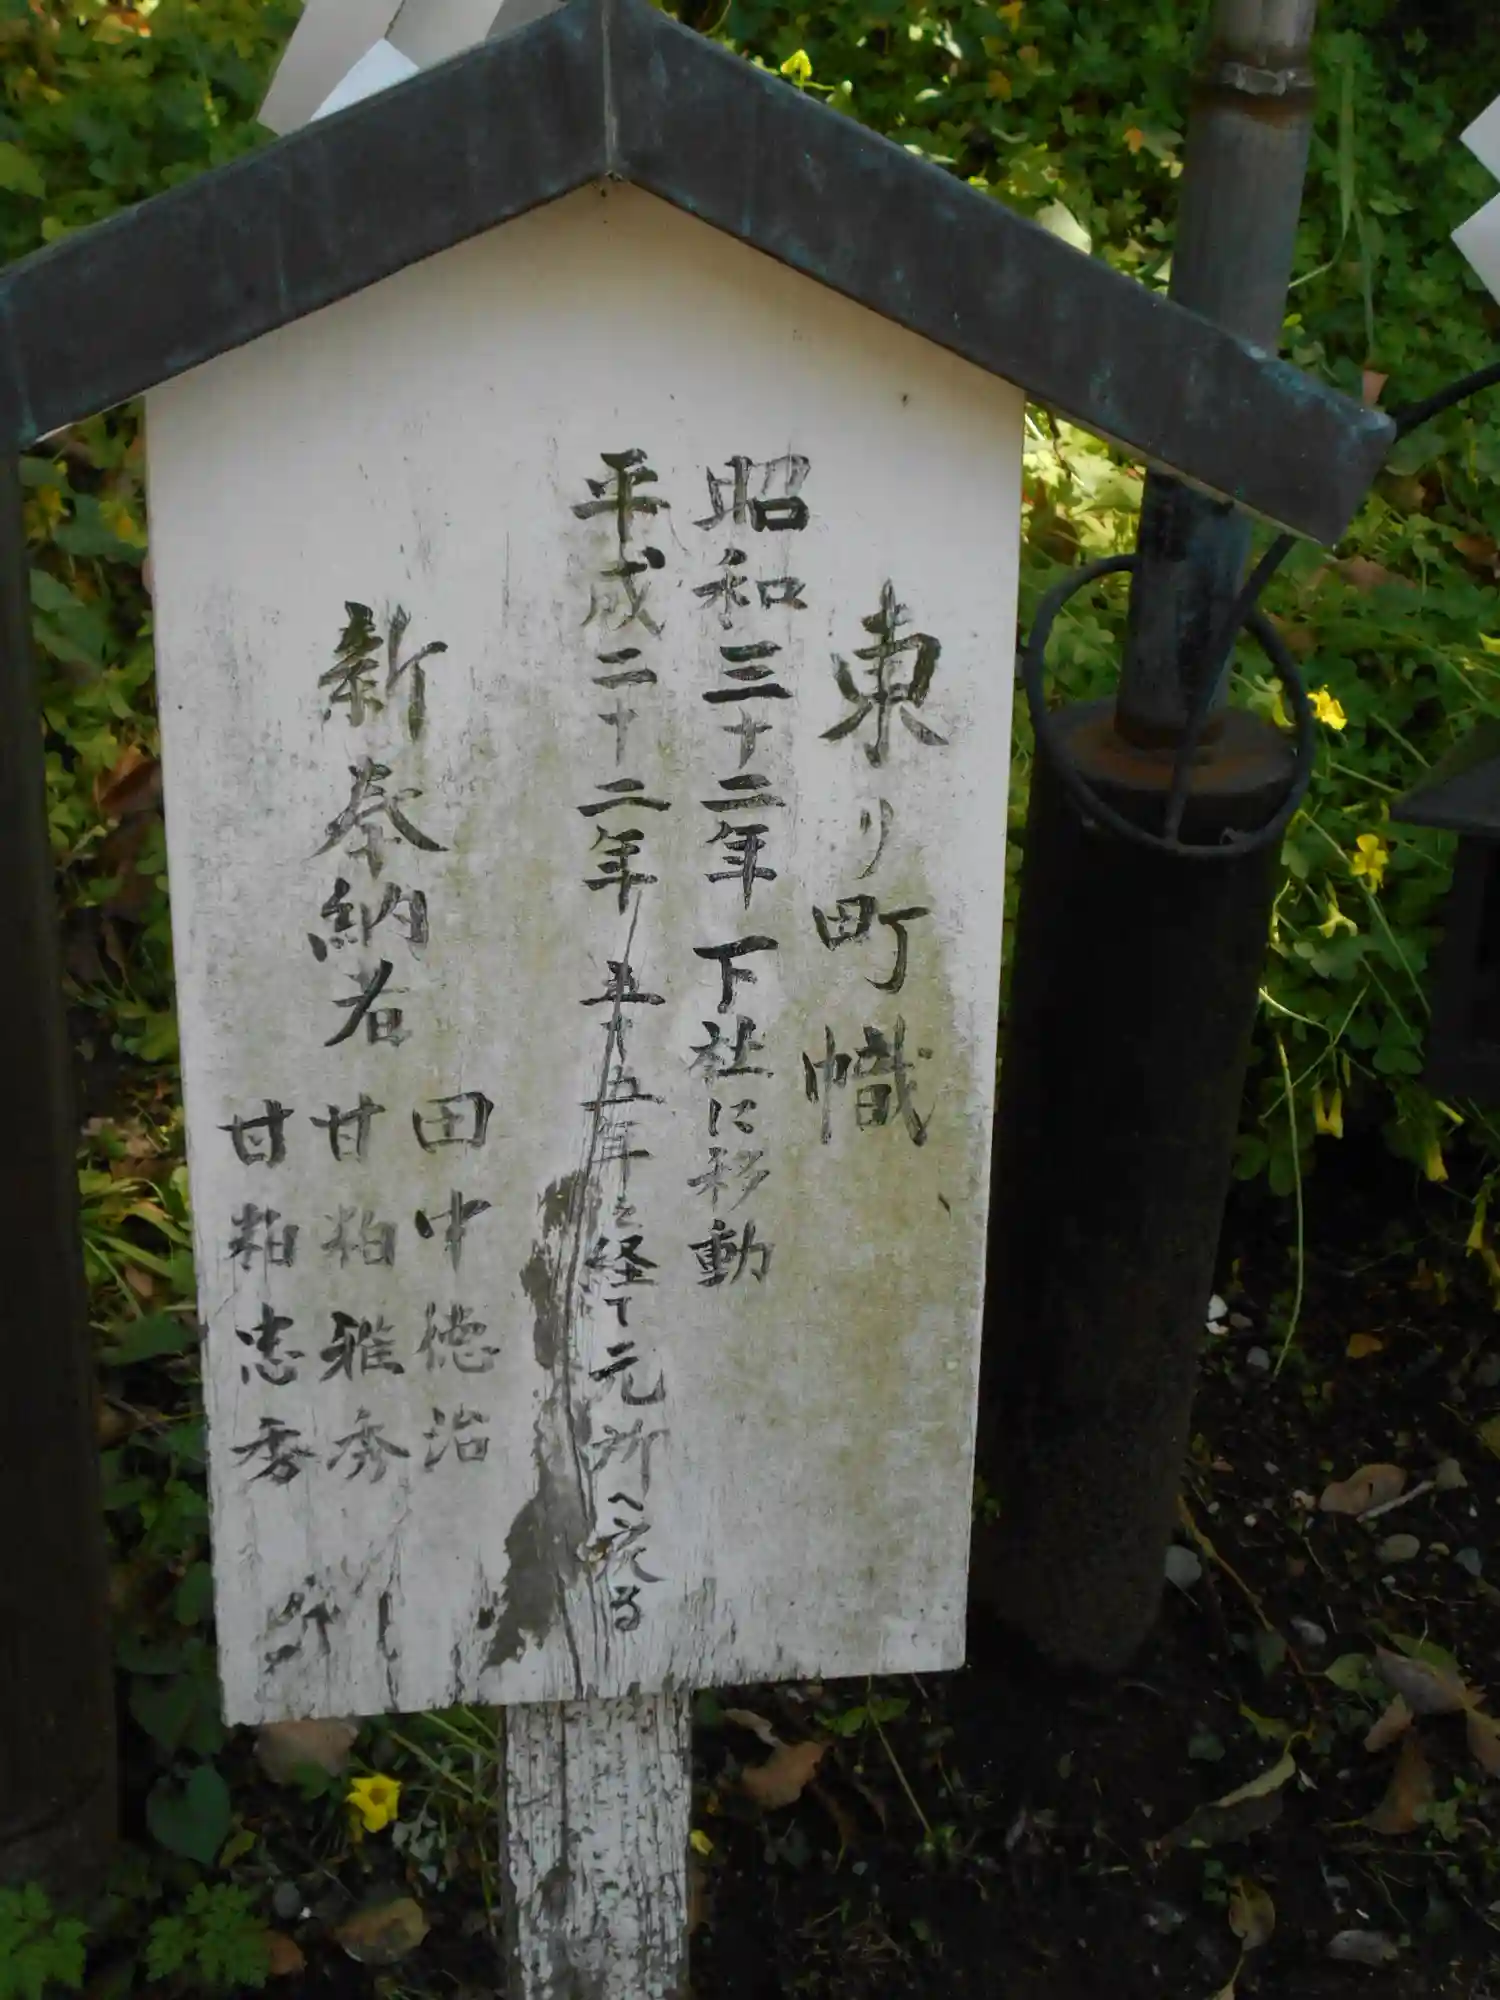 東り町幟
昭和三十二年 下社に移動
平成二十二年 五十五年を経て元所へ戻る
新奉納者
田中徳治
甘粕雅秀
甘粕忠秀